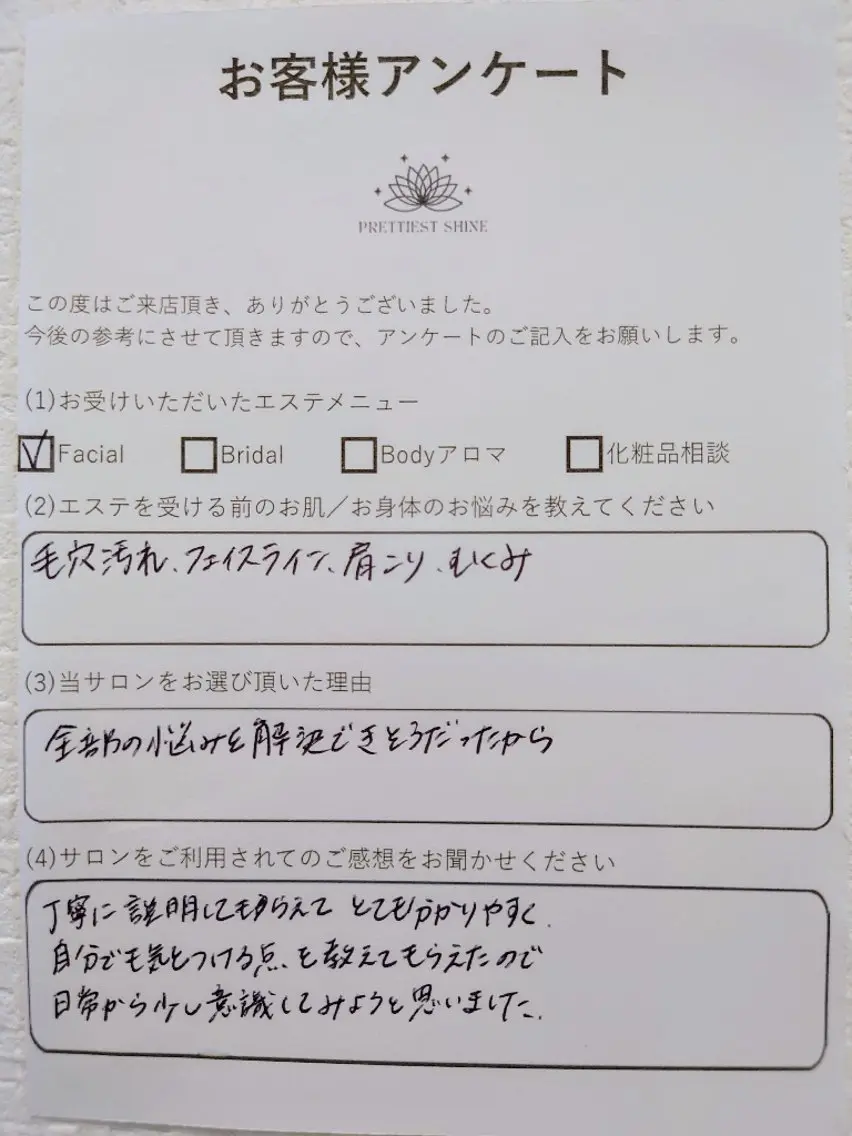 お客様アンケート
PRETTIEST SHINE
この度はご来店頂き、ありがとうございました。
今後の参考にさせて頂きますので、アンケートのご記入をお願いします。
(1)お受けいただいたエステメニュー
Facial Bridal Bodyアロマ 化粧品相談
(2)エステを受ける前のお肌／お身体のお悩みを教えてください
毛穴汚れ、フェイスライン、肩こり、むくみ
(3)当サロンをお選び頂いた理由
全部の悩みを解決できそうだったから
(4)サロンをご利用されてのご感想をお聞かせください
丁寧に説明してもらえて とても分かりやすく、
自分でも気をつける点を教えてもらえたので
日常から少し意識してみようと思いました。